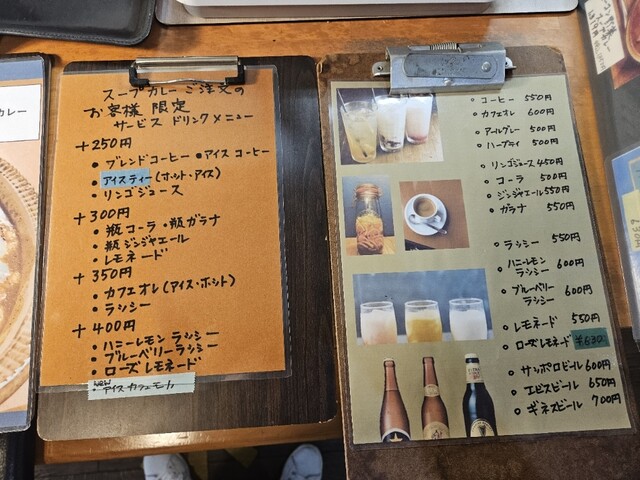 スープカレーご注文の
お客様 限定
サービス ドリンクメニュー
+250円
• ブレンドコーヒー • アイスコーヒー
• アイスティー(ホット・アイス)
• リンゴジュース
+300円
• 瓶コーラ • 瓶ガラナ
• 瓶ジンジャエール
• レモネード
+350円
• カフェオレ(アイス・ホット)
• ラッシー
+400円
• ハニーレモンラッシー
• ブルーベリーラッシー
• ローズレモネード
NEW
• アイスカフェモカ
コーヒー 550円
カフェオレ 600円
アールグレー 500円
ハーブティ 500円
リンゴジュース 450円
コーラ 500円
ジンジャエール 550円
ガラナ 550円
ラッシー 550円
ハニーレモン
ラッシー 600円
ブルーベリー
ラッシー 600円
レモネード 550円
ローズレモネード ¥630
サッポロビール 600円
エビスビール 650円
ギネスビール 700円
カレー